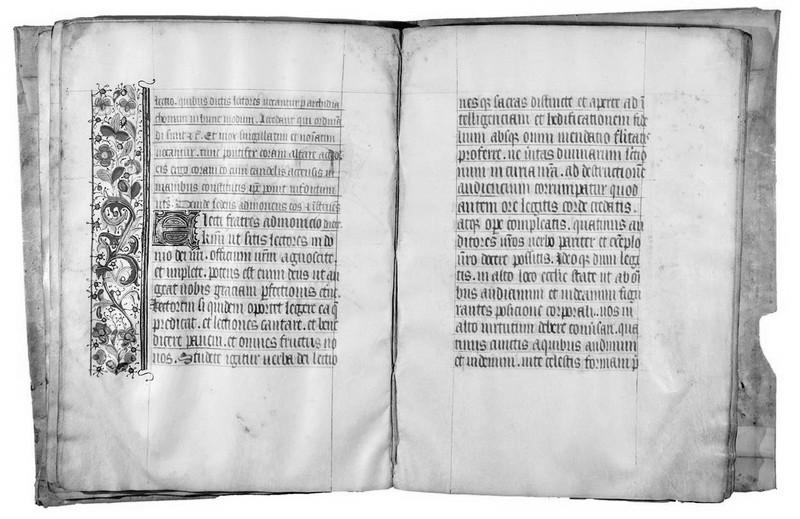 lectio. quibus dictis lectores vocantur p archidia
chonum in hunc modum. Accedant qui ordinā
di sunt Et mox singillatim et noīatim
vocantur. tunc pontifex coram altare
eis ergo coram eo cum candelis accensis in
manibus constitutis ip̄e ponit
Deinde sedens admoneat eos
Electi fratres admonicio
Kr̄mi ut sitis lectores in do
mo dei n̄ri. officium vr̄m agnoscite.
et implete. Potens est enim deus ut au
geat vobis graciam p̄fectionis et̄ne.
Lectorem si quidem oportet legere ea q̄
predicat. et lectiones cantare. et bene
dicere panem. et omnes fructus no
vos. Studete igitur verba dei lectio
nes qȝ sacras distincte et aperte ad ī
telligenciam et hedificationem fide
lium absqȝ omni mendatio
proferre. ne v̄itas divinarum lectio
num incuria vr̄a. ad destructionē
audiencium corrumpatur quod
autem ore legitis corde credatis.
atqȝ ope compleatis. quatinus au
ditores vr̄os verbo pariter et exēplo
vr̄o docere possitis. Ideoqȝ dum legi
tis. in alto loco eccīie state ut ab oīi
bus audiemini et videamini figu
rantes posicione corporali. vos in
alto virtutum debere cōuersari. qua
tinus cunctis a quibus audimini
et videmini. vite celestis formam p̄